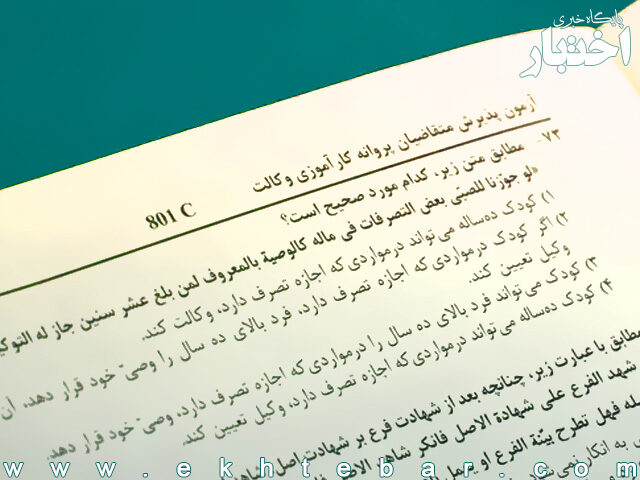 پایگاه خبری
اختبار
آزمون پذیرش متقاضیان پروانه کارآموزی وکالت
801 C
۷۳- مطابق متن زیر، کدام مورد صحیح است؟
«لو جوّزنا للصبّی بعض التصرفات فی ماله کالوصیة بالمعروف لمن بلغ عشر سنین جاز له التوکی
۱) کودک ده‌ساله می‌تواند درمواردی که اجازه تصرف دارد، وکالت کند.
۲) اگر کودک درمواردی که اجازه تصرف دارد، فرد بالای ده سال را وصیّ خود قرار دهد، آن
وکیل تعیین کند.
۳) کودک می‌تواند فرد بالای ده سال را درمواردی که اجازه تصرف دارد، وصیّ خود قرار دهد.
۴) کودک ده‌ساله می‌تواند درمواردی که اجازه تصرف دارد، وکیل تعیین کند.
مطابق با عبارت زیر، چنانچه بعد از شهادت فرع بر شهادت اصل، شاه
شهد الفرع علی شهادة الاصل فانکر شاهد الاصل
فهل تطرح بیّنة الفرع او یعمل
به انکار نمی‌شود
www.ekhtebar.com